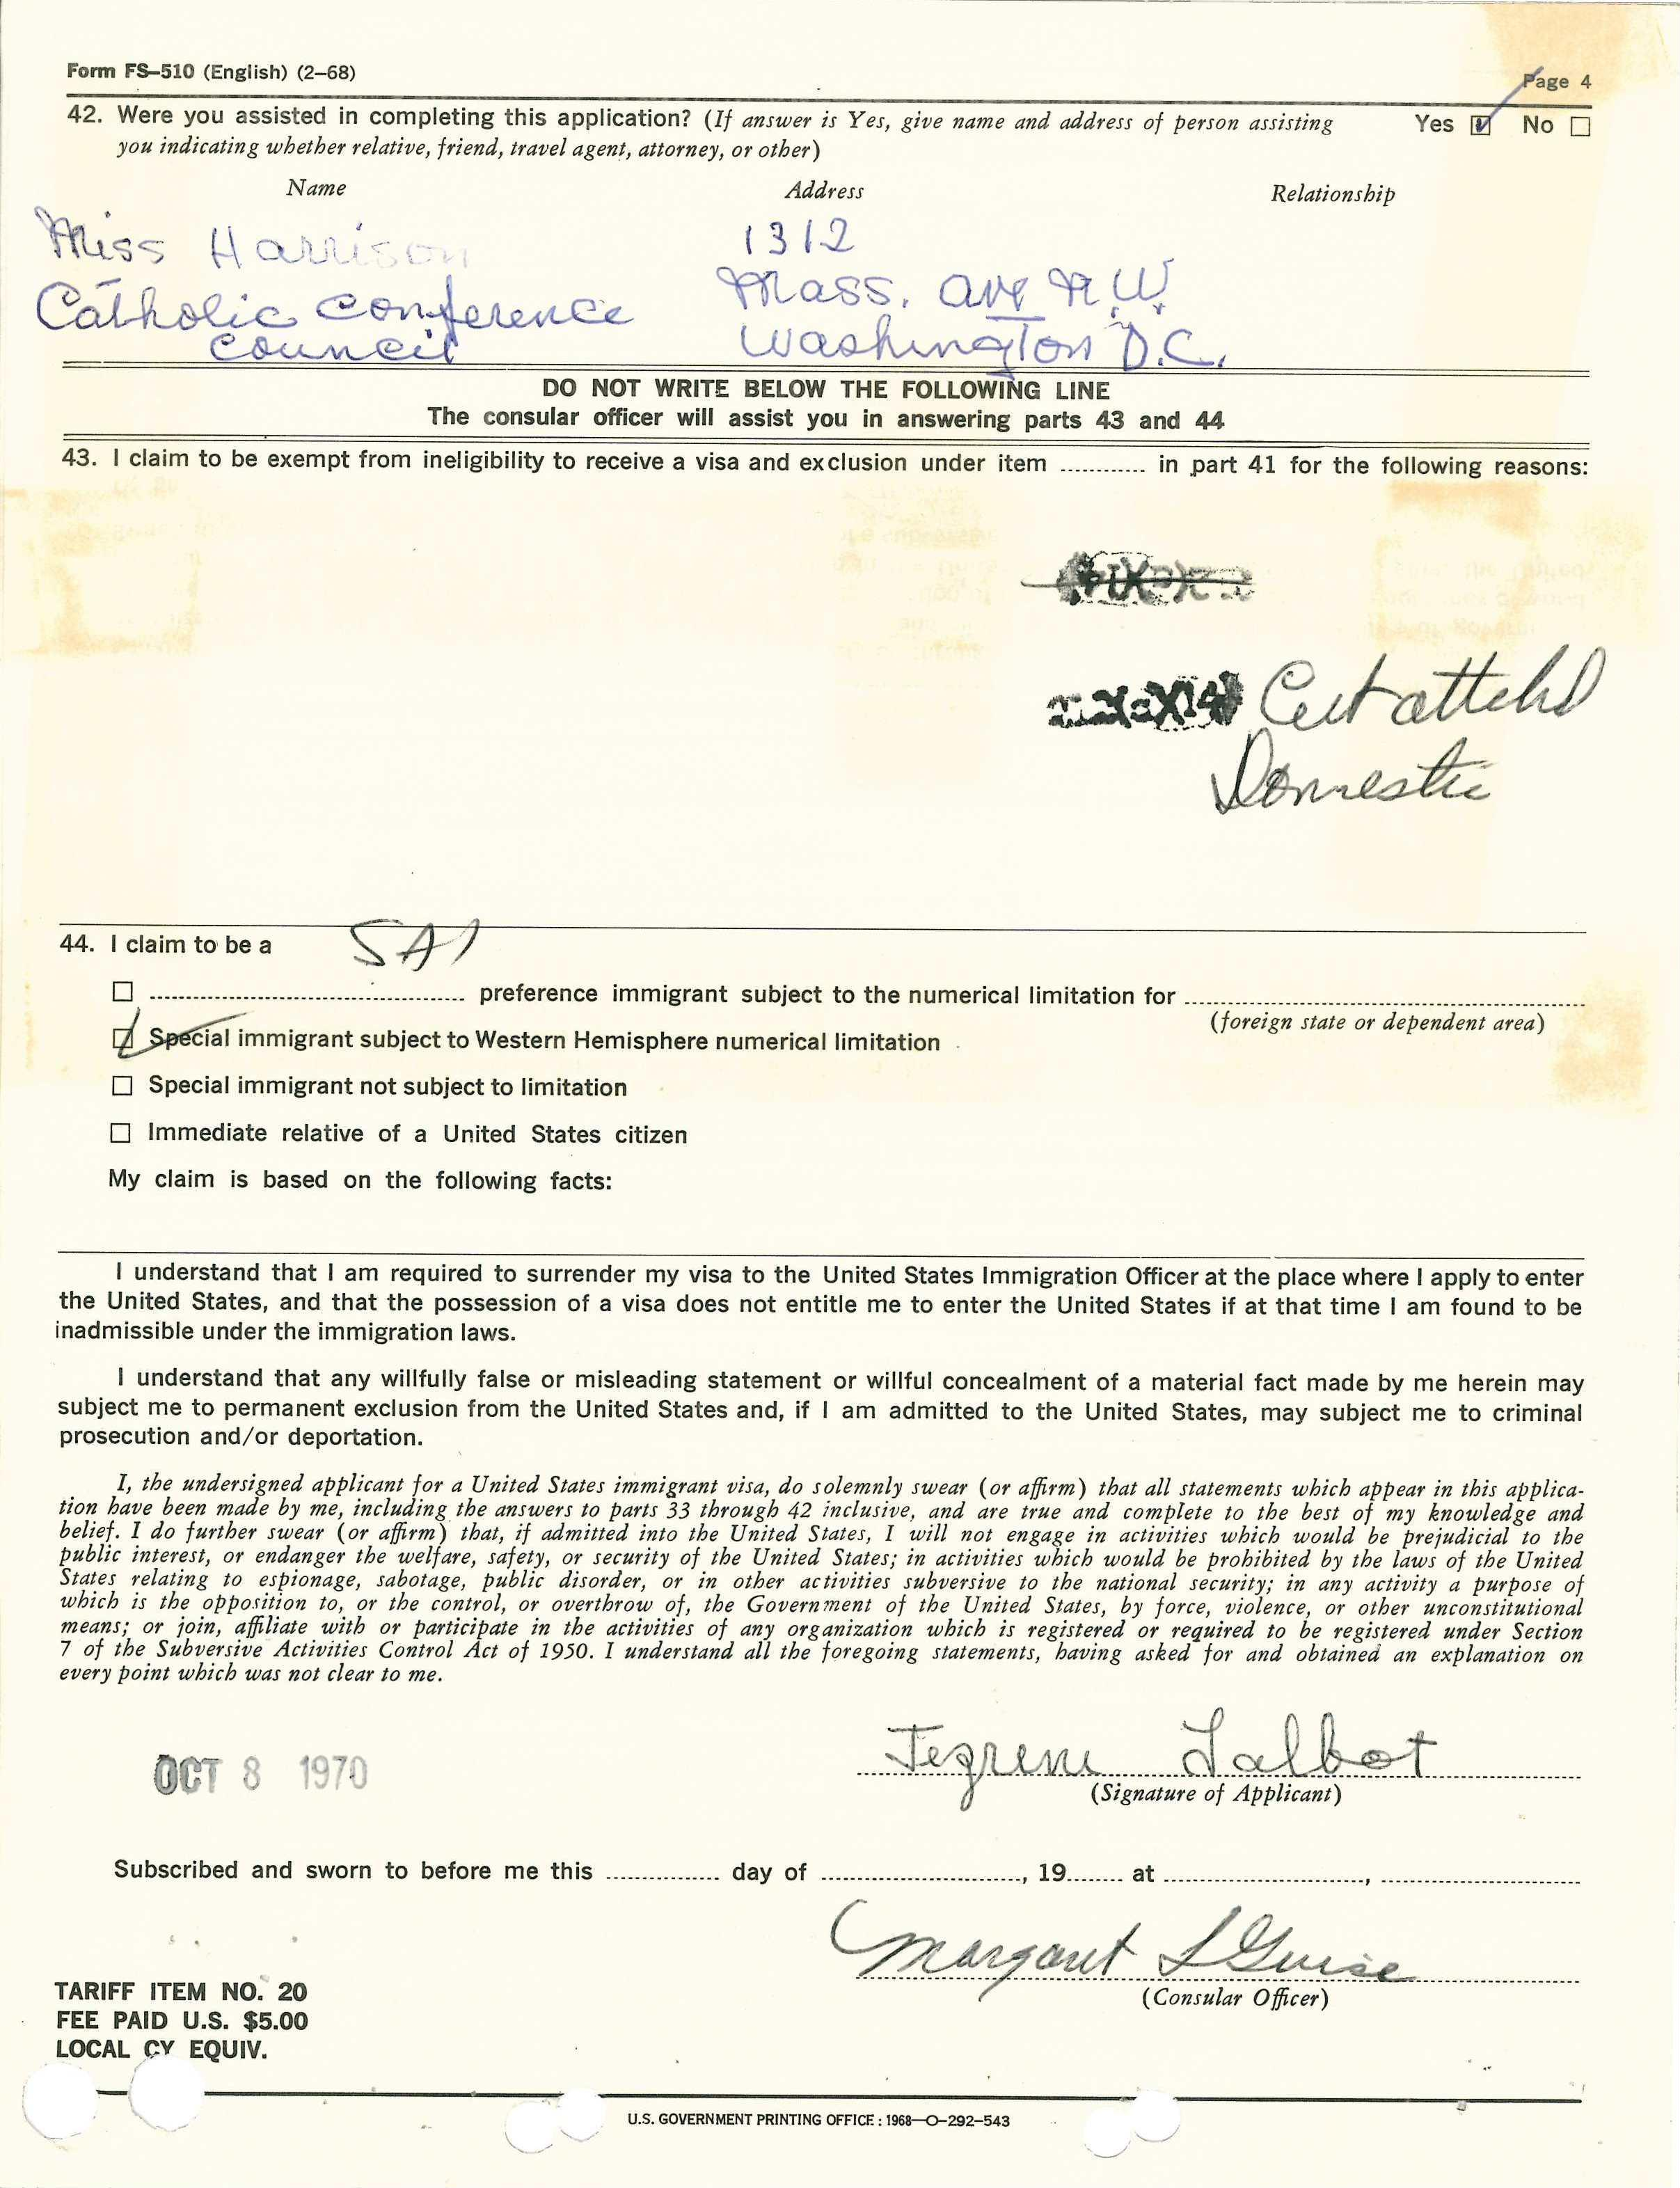 Form FS–510 (English) (2–68)
Page 4
42. Were you assisted in completing this application? (If answer is Yes, give name and address of person assisting
Yes ☑ No ☐
you indicating whether relative, friend, travel agent, attorney, or other)
Name Address Relationship
Miss Harrison 1312
Catholic Conference Mass. Ave N.W.
Council Washington D.C.
DO NOT WRITE BELOW THE FOLLOWING LINE
The consular officer will assist you in answering parts 43 and 44
43. I claim to be exempt from ineligibility to receive a visa and exclusion under item ............ in part 41 for the following reasons:
Cert
Domestic
44. I claim to be a SA1
☐ ............ preference immigrant subject to the numerical limitation for ............
(foreign state or dependent area)
☑ Special immigrant subject to Western Hemisphere numerical limitation
☐ Special immigrant not subject to limitation
☐ Immediate relative of a United States citizen
My claim is based on the following facts:
I understand that I am required to surrender my visa to the United States Immigration Officer at the place where I apply to enter
the United States, and that the possession of a visa does not entitle me to enter the United States if at that time I am found to be
inadmissible under the immigration laws.
I understand that any willfully false or misleading statement or willful concealment of a material fact made by me herein may
subject me to permanent exclusion from the United States and, if I am admitted to the United States, may subject me to criminal
prosecution and/or deportation.
I, the undersigned applicant for a United States immigrant visa, do solemnly swear (or affirm) that all statements which appear in this applica-
tion have been made by me, including the answers to parts 33 through 42 inclusive, and are true and complete to the best of my knowledge and
belief. I do further swear (or affirm) that, if admitted into the United States, I will not engage in activities which would be prejudicial to the
public interest, or endanger the welfare, safety, or security of the United States; in activities which would be prohibited by the laws of the United
States relating to espionage, sabotage, public disorder, or in other activities subversive to the national security; in any activity a purpose of
which is the opposition to, or the control, or overthrow of, the Government of the United States, by force, violence, or other unconstitutional
means; or join, affiliate with or participate in the activities of any organization which is registered or required to be registered under Section
7 of the Subversive Activities Control Act of 1950. I understand all the foregoing statements, having asked for and obtained an explanation on
every point which was not clear to me.
OCT 8 1970
Talbot
(Signature of Applicant)
Subscribed and sworn to before me this ............ day of ............, 19........ at ............, ............
Margaret L Guise
(Consular Officer)
TARIFF ITEM NO. 20
FEE PAID U.S. $5.00
LOCAL CY EQUIV.
U.S. GOVERNMENT PRINTING OFFICE : 1968—O–292–543